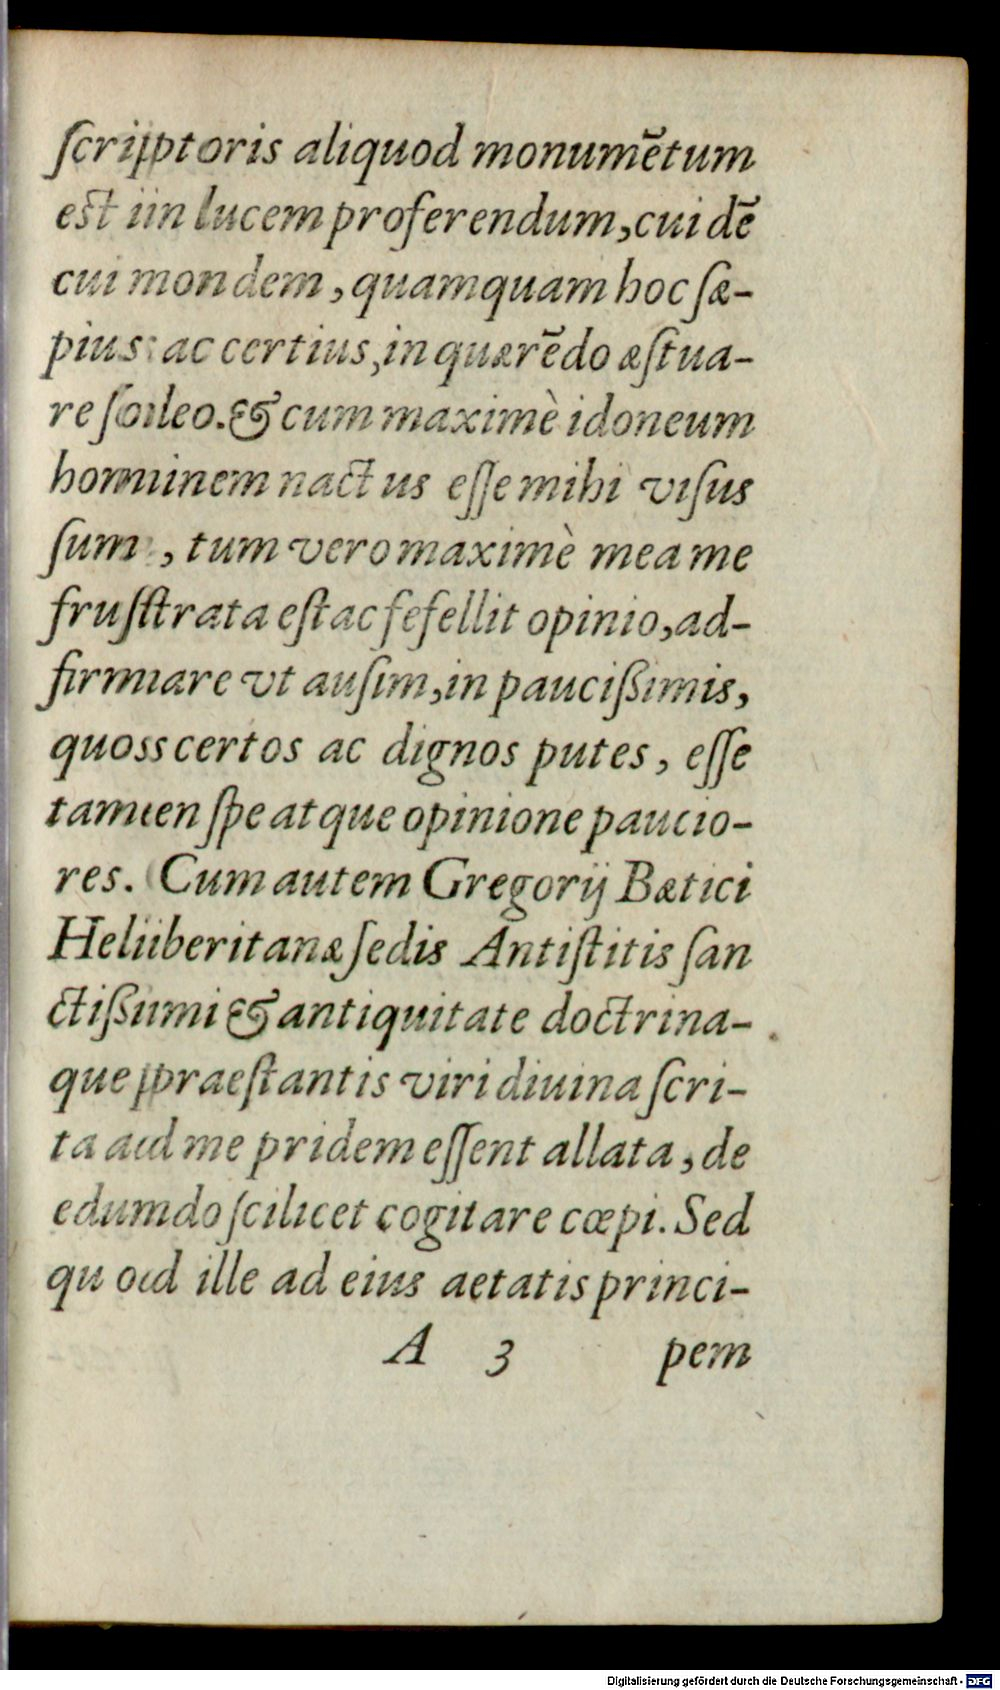 ſcriptoris aliquod monumẽtum
est in lucem proferendum, cui dẽ
cui non dem, quamquam hoc ſæ-
pius ac certius, in quærẽdo æſtua-
re ſoleo. & cum maximè idoneum
hominem nactus eſſe mihi viſus
ſum, tum vero maximè mea me
fruſtrata eſt ac fefellit opinio, ad-
firmare vt auſim, in pauciſsimis,
quos certos ac dignos putes, eſſe
tamen ſpe atque opinione paucio-
res. Cum autem Gregorij Bætici
Heliberitanæ ſedis Antiſtitis ſan
ctiſsimi & antiquitate doctrina-
que praeſtantis viri diuina ſcri-
ta ad me pridem eſſent allata, de
edundo ſcilicet cogitare cœpi. Sed
quod ille ad eius aetatis princi-
A 3 pem
Digitalisierung gefördert durch die Deutsche Forschungsgemeinschaft - DFG